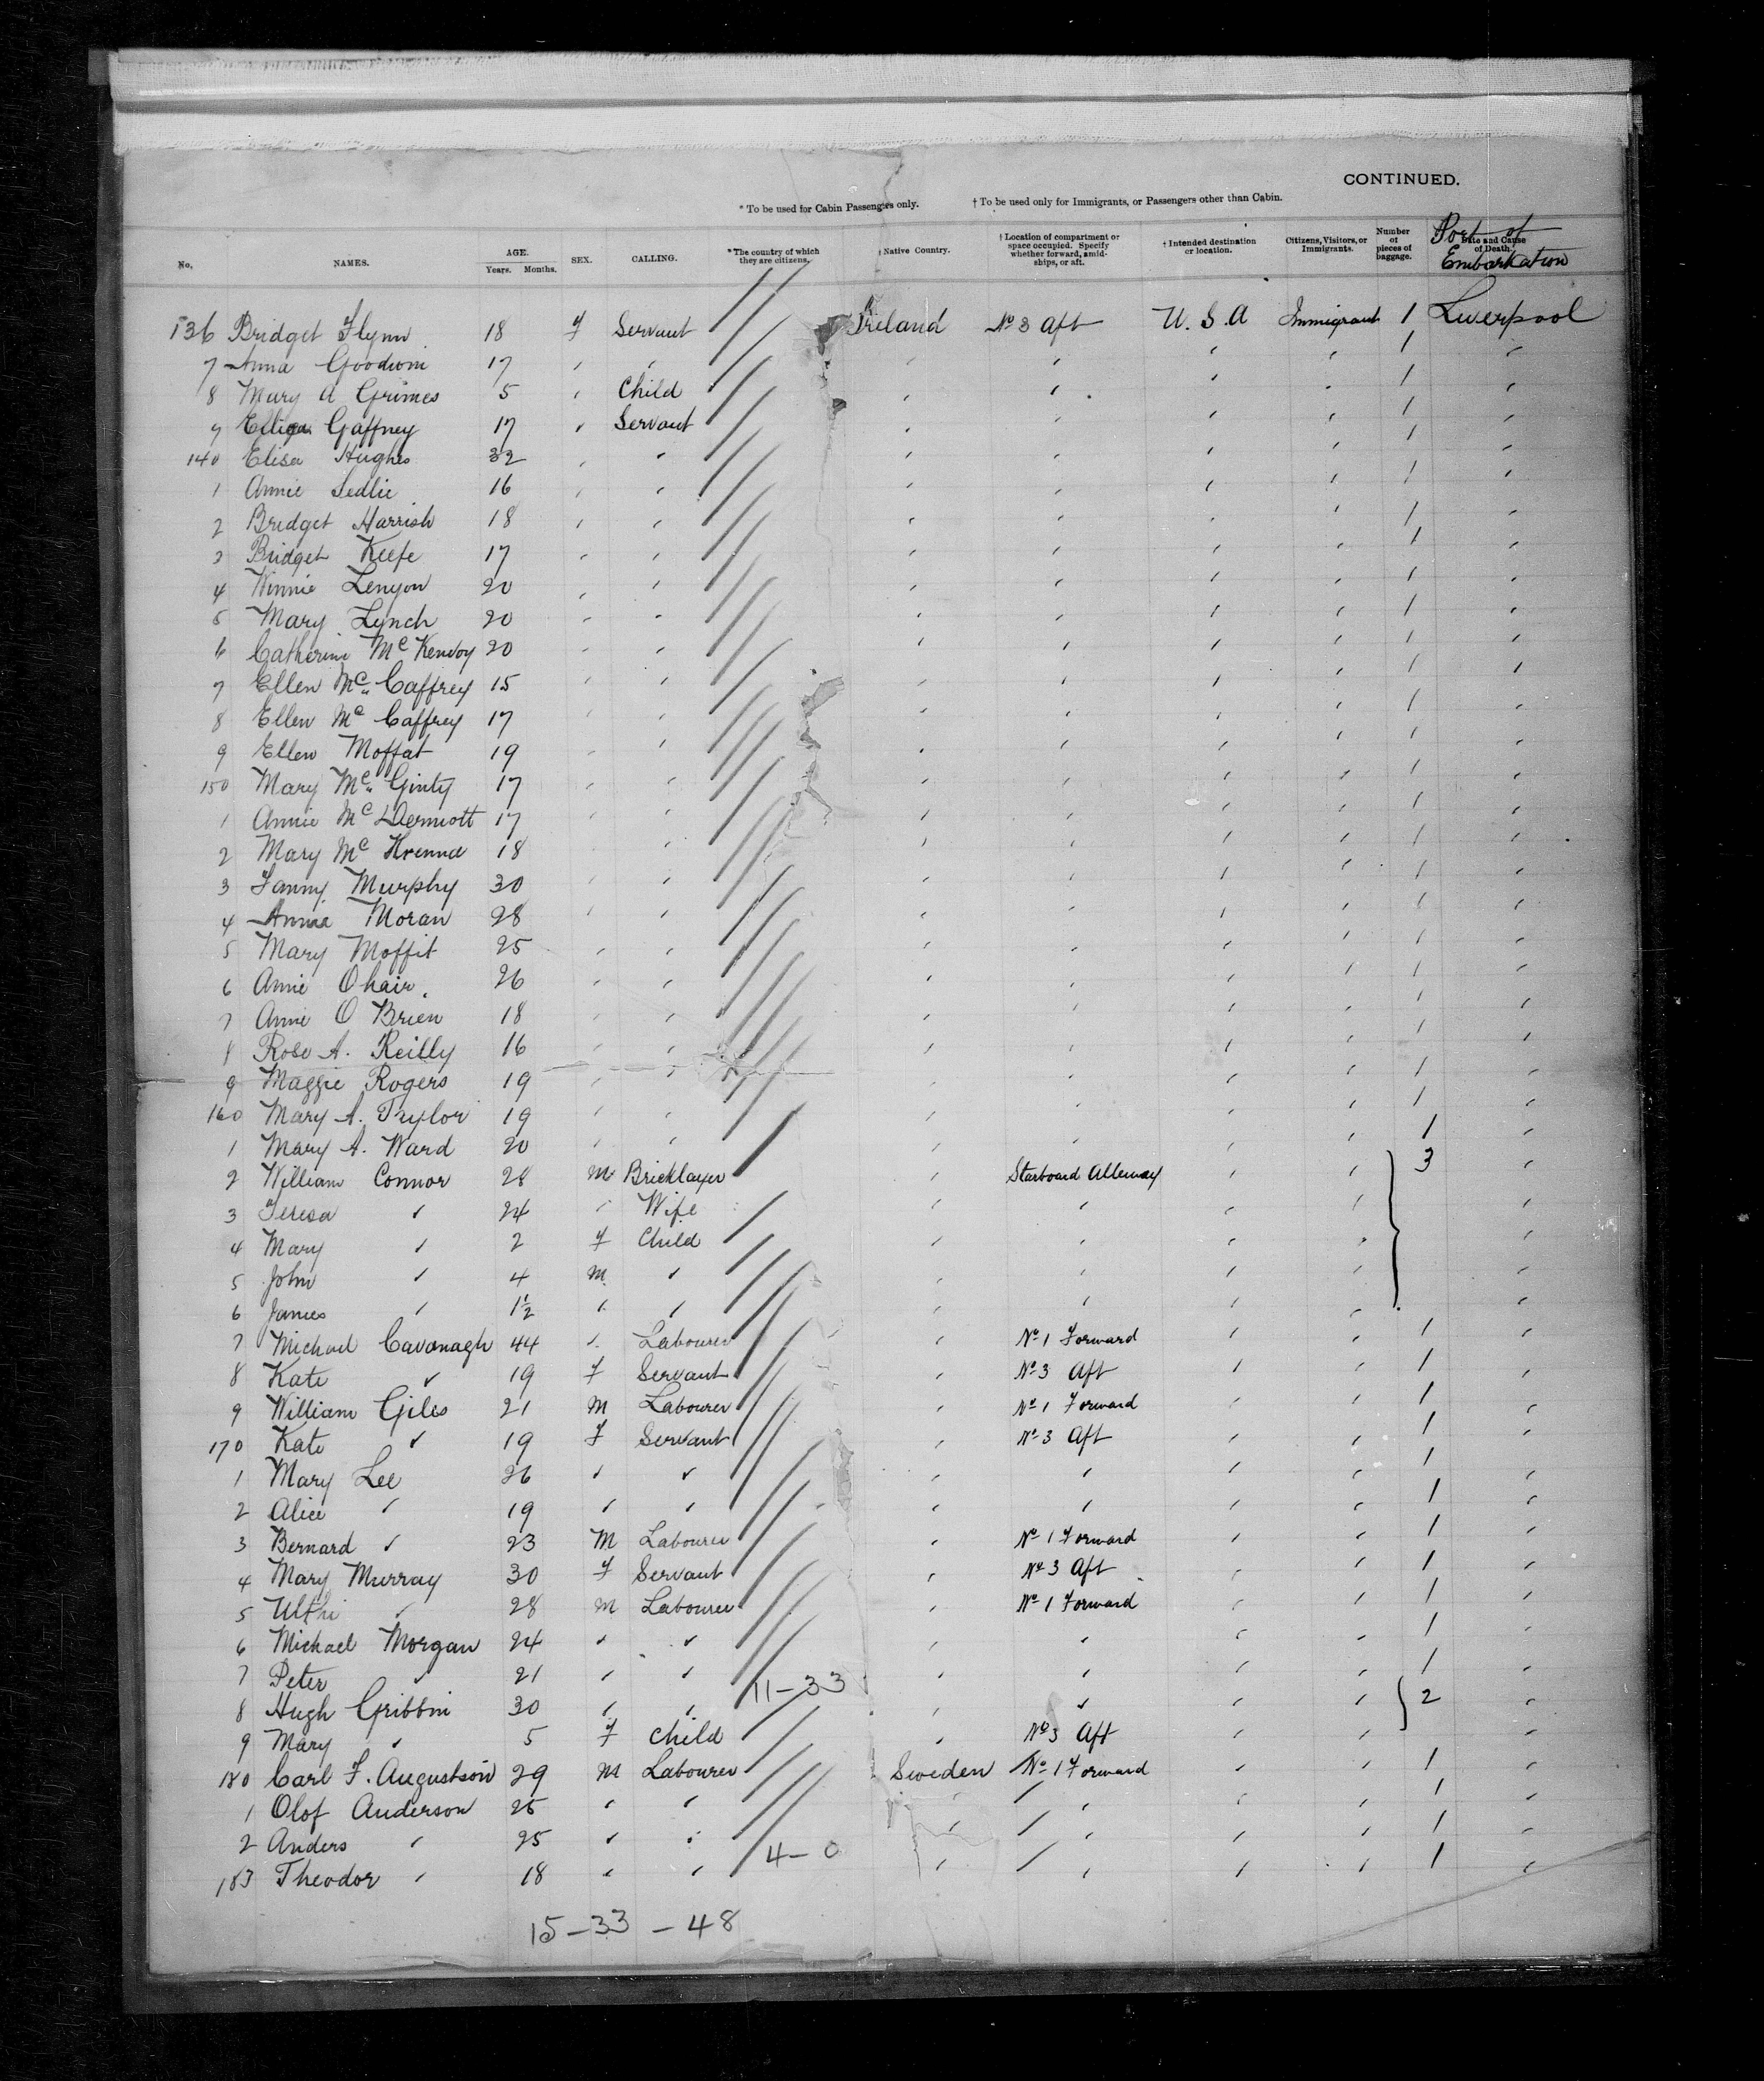 CONTINUED.
* To be used for Cabin Passengers only. † To be used only for Immigrants, or Passengers other than Cabin.
No. NAMES. AGE. Years. Months. SEX. CALLING. * The country of which they are citizens. † Native Country. † Location of compartment or space occupied. Specify whether forward, amid-ships, or aft. † Intended destination or location. Citizens, Visitors, or Immigrants. Number of pieces of baggage. Date and Cause of Death. Port of Embarkation
136 Bridget Flynn 18 F Servant Ireland No 3 Aft U.S.A Immigrant 1 Liverpool
7 Anna Goodwin 17 " " " " " " 1 "
8 Mary A Grimes 5 " Child " " " " 1 "
9 Gaffney 17 " Servant " " " " 1 "
140 Elisa Hughes 32 " " " " " " 1 "
1 Annie 16 " " " " " " 1 "
2 Bridget Harrish 18 " " " " " " 1 "
3 Bridget Keefe 17 " " " " " " 1 "
4 Winnie Lenyon 20 " " " " " " 1 "
5 Mary Lynch 20 " " " " " " 1 "
6 Catherine 20 " " " " " " 1 "
7 Ellen Mc Caffrey 15 " " " " " " 1 "
8 Ellen Mc Caffrey 17 " " " " " " 1 "
9 Ellen Moffat 19 " " " " " " 1 "
150 Mary Mc Ginty 17 " " " " " " 1 "
1 Annie Mc Dermott 17 " " " " " " 1 "
2 Mary Mc Krenna 18 " " " " " 1 "
3 Fanny Murphy 30 " " " " " " 1 "
4 Annia Moran 28 " " " " " " 1 "
5 Mary Moffit 25 " " " " " " 1 "
6 Annie Ohair 26 " " " " " " 1 "
7 Annie O Brien 18 " " " " " " 1 "
8 Rose A. Reilly 16 " " " " " " 1 "
9 Maggie Rogers 19 " " " " " " 1 "
160 Mary A. Taylor 19 " " " " " " 1 "
1 Mary A. Ward 20 " " " " " " 1 "
2 William Connor 28 M Bricklayer " Starboard Alleway " " 3 "
3 Teresa " 24 " Wife " " " " "
4 Mary " 2 F Child " " " " "
5 John " 4 M " " " " " "
6 James " 1½ " " " " " " "
7 Michael Cavanagh 44 " Labourer " No 1 Forward " " 1 "
8 Kate " 19 F Servant " No 3 Aft " " 1 "
9 William Giles 21 M Labourer " No 1 Forward " " 1 "
170 Kate " 19 F Servant " No 3 Aft " " 1 "
1 Mary Lee 26 " " " " " " 1 "
2 Alice " 19 " " " " " " 1 "
3 Bernard " 23 M Labourer " No 1 Forward " " 1 "
4 Mary Murray 30 F Servant " No 3 Aft " " 1 "
5 " 28 M Labourer " No 1 Forward " " 1 "
6 Michael Morgan 24 " " " " " " 1 "
7 Peter " 21 " " 11-33 " " " " 1 "
8 Hugh Gribbin 30 " " " " " " 2 "
9 Mary " 5 F Child " No 3 Aft " " "
180 Carl F. Augustson 29 M Labourer Sweden No 1 Forward " " 1 "
1 Olof Anderson 25 " " " " " " 1 "
2 Anders " 25 " " " " " " 1 "
183 Theodor " 18 " " 4-0 " " " " 1 "
15-33-48